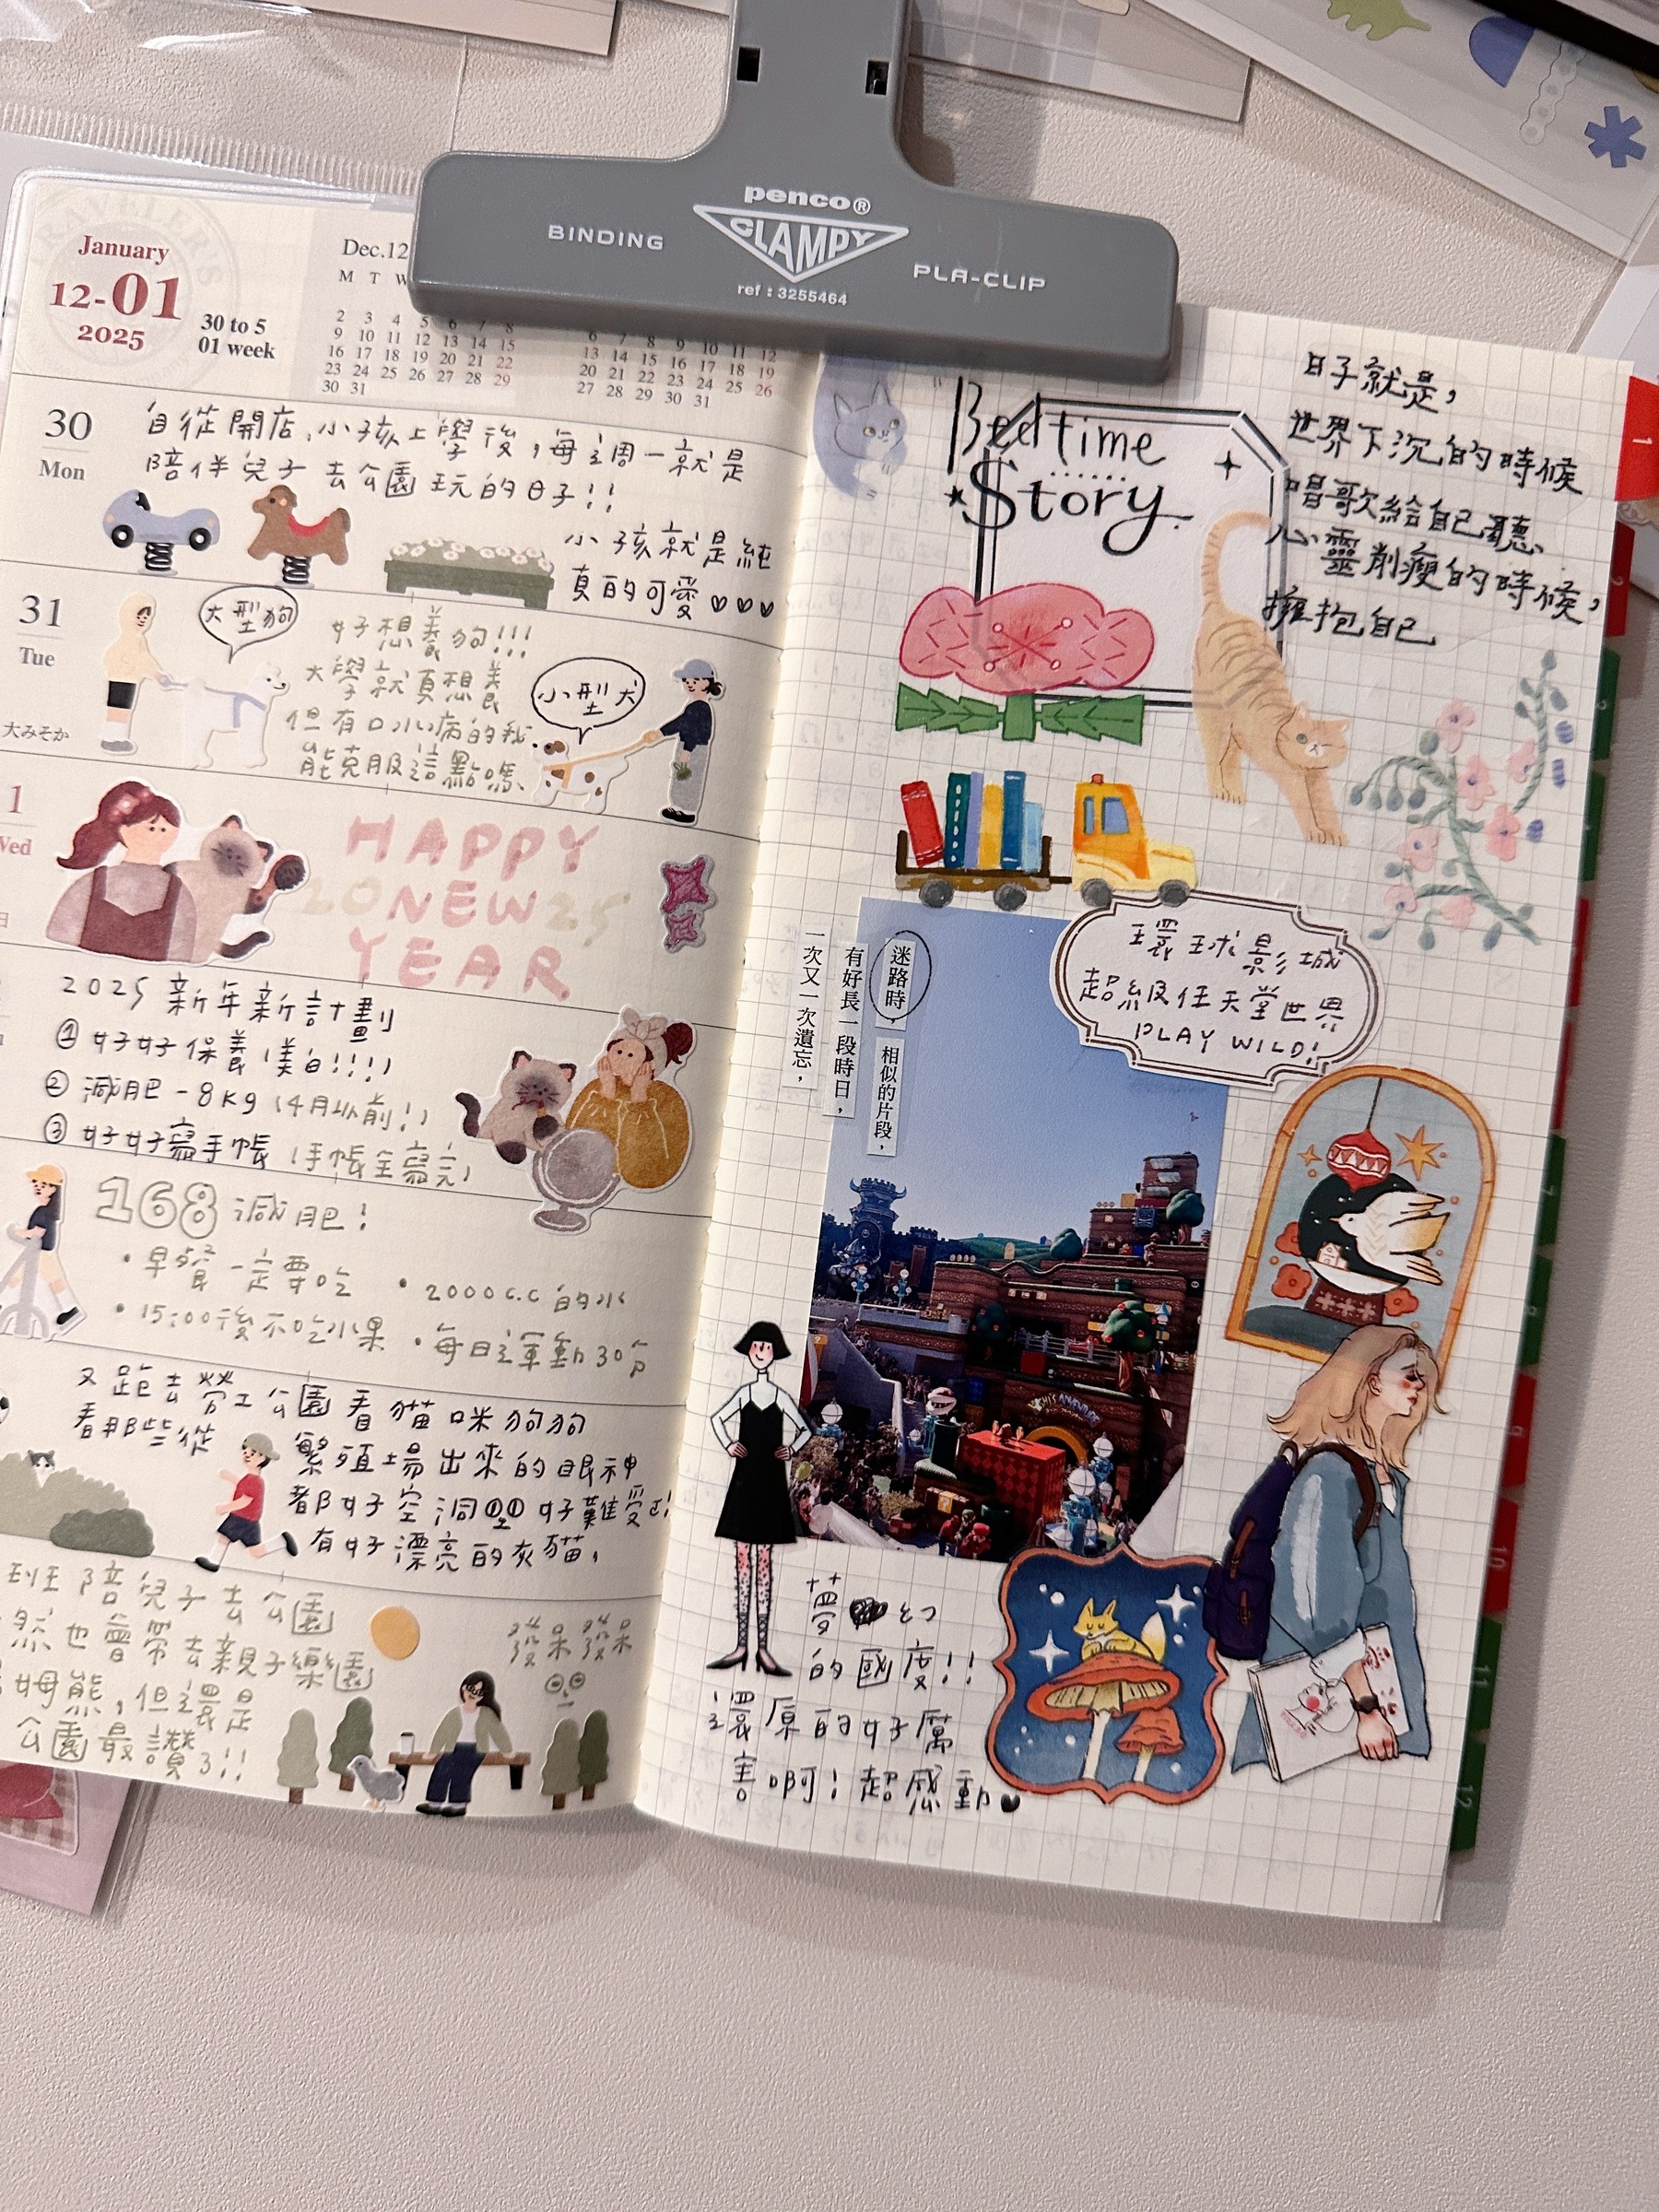 penco®
BINDING
CLAMPY
PLA-CLIP
ref : 3255464
TRAVELER'S
January
12-01
2025
30 to 5
01 week
Dec.12
M T W
2 3 4 5 6 7 8
9 10 11 12 13 14 15
16 17 18 19 20 21 22
23 24 25 26 27 28 29
30 31
6 7 8 9 10 11 12
13 14 15 16 17 18 19
20 21 22 23 24 25 26
27 28 29 30 31
30
Mon
自從開店、小孩上學後,每週一就是
陪伴兒子去公園玩的日子!!
小孩就是純
真的可愛♡♡♡
31
Tue
大みそか
大型狗
好想養狗!!!
大學就真想養
但有口水病的我
能克服這點嗎
小型犬
1
Wed
日
HAPPY
20NEW25
YEAR
2025 新年新計劃
① 好好保養(美白!!!)
② 減肥 -8kg (4月以前!)
③ 好好寫手帳 (手帳全寫完)
168 減肥!
•早餐一定要吃
•2000c.c的水
•15:00後不吃水果
•每日運動30分
又跑去勞工公園看貓咪狗狗
看那些從
繁殖場出來的眼神
都好空洞 好難受!
有好漂亮的灰貓,
班陪兒子去公園
然也會帶去親子樂園
姆熊,但還是
公園最讚了!!
發呆發呆
Bedtime
Story
日子就是,
世界下沉的時候
唱歌給自己聽
心靈削瘦的時候,
擁抱自己
迷路時,
相似的片段,
有好長一段時日,
一次又一次遺忘,
環球影城
超級任天堂世界
PLAY WILD!
YOSHI'S ADVENTURE
夢幻
的國度!!
還原的好厲
害啊!超感動♥
1
2
7
9
10
11
12